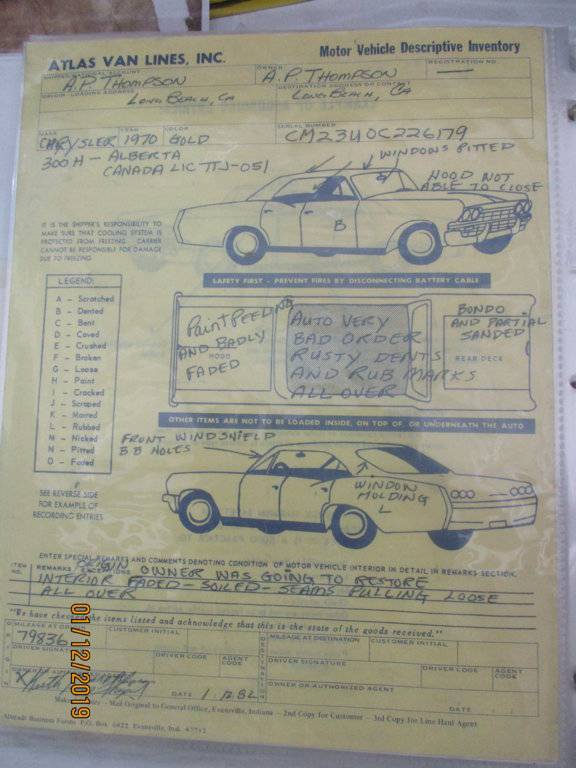 ATLAS VAN LINES, INC.
Motor Vehicle Descriptive Inventory
SHIPPER/NATIONAL ACCOUNT
A.P. THOMPSON
OWNER
A.P. THOMPSON
REGISTRATION NO.
—
ORIGIN LOADING ADDRESS
LONG BEACH, CA
DESTINATION ADDRESS OR CONTACT
LONG BEACH, CA
MAKE
CHRYSLER
YEAR
1970
COLOR
GOLD
SERIAL NUMBER
CM23U0C226179
300 H - ALBERTA
CANADA LIC TTJ-051
WINDOWS PITTED
HOOD NOT
ABLE TO CLOSE
B
IT IS THE SHIPPER'S RESPONSIBILITY TO
MAKE SURE THAT COOLING SYSTEM IS
PROTECTED FROM FREEZING. CARRIER
CANNOT BE RESPONSIBLE FOR DAMAGE
DUE TO FREEZING.
SAFETY FIRST - PREVENT FIRES BY DISCONNECTING BATTERY CABLE
LEGEND:
A - Scratched
B - Dented
C - Bent
D - Caved
E - Crushed
F - Broken
G - Loose
H - Paint
I - Cracked
J - Scraped
K - Marred
L - Rubbed
M - Nicked
N - Pitted
O - Faded
SEE REVERSE SIDE
FOR EXAMPLE OF
RECORDING ENTRIES
PAINT PEELING
AND BADLY
HOOD
FADED
AUTO VERY
BAD ORDER
RUSTY DENTS
AND RUB MARKS
ALL OVER
BONDO
AND PARTIAL
SANDED
REAR DECK
OTHER ITEMS ARE NOT TO BE LOADED INSIDE, ON TOP OF, OR UNDERNEATH THE AUTO
FRONT WINDSHIELD
BB HOLES
WINDOW
MOLDING
L
ENTER SPECIAL REMARKS AND COMMENTS DENOTING CONDITION OF MOTOR VEHICLE INTERIOR IN DETAIL IN REMARKS SECTION.
ITEM NO.
REMARKS
EXCEPTIONS
OWNER WAS GOING TO RESTORE
INTERIOR FADED - SOILED - SEAMS PULLING LOOSE
ALL OVER
"We have checked the items listed and acknowledge that this is the state of the goods received."
MILEAGE AT
79836
CUSTOMER INITIAL
MILEAGE AT DESTINATION
CUSTOMER INITIAL
DRIVER SIGNATURE
DRIVER CODE
AGENT CODE
DRIVER SIGNATURE
DRIVER CODE
AGENT CODE
OWNER OR AUTHORIZED AGENT
DATE 1 12 82
DATE
Mail Original to General Office, Evansville, Indiana - 2nd Copy for Customer - 3rd Copy for Line Haul Agent
Business Forms P.O. Box 6822 Evansville, Ind. 47712
01/12/2019